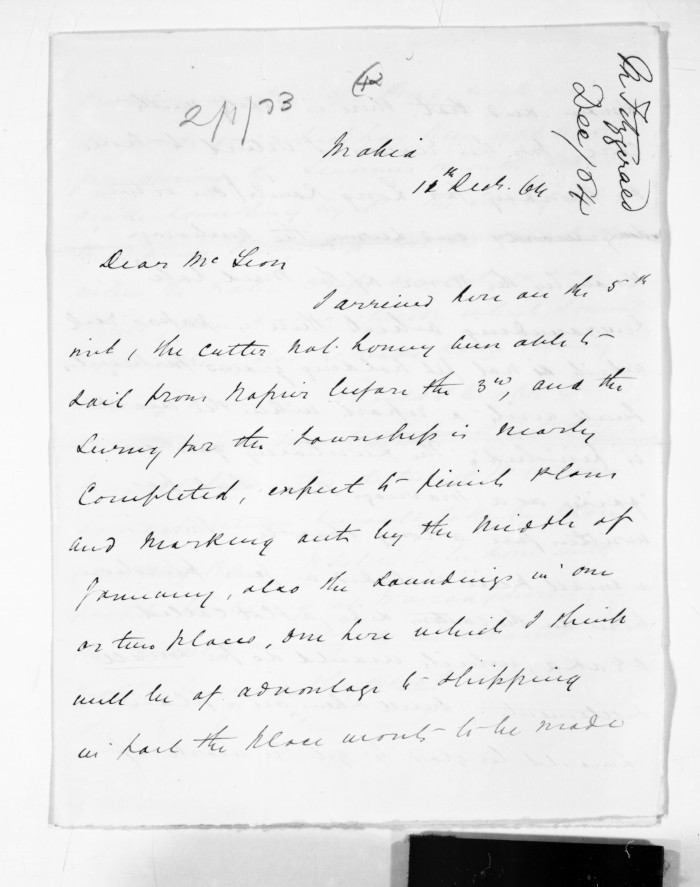 2/1/73
12
M Fitzgerald
Dec/64
Mahia
12th Decr. 64
Dear McLean
I arrived here on the 5th
inst, the cutter not having been able to
sail from Napier before the 3rd, and the
Survey for the township is nearly
Completed, expect to finish plans
and marking out by the Middle of
January, also the Soundings in one
or two places, one here which I think
will be of advantage to shipping
in fact the place wants to be made